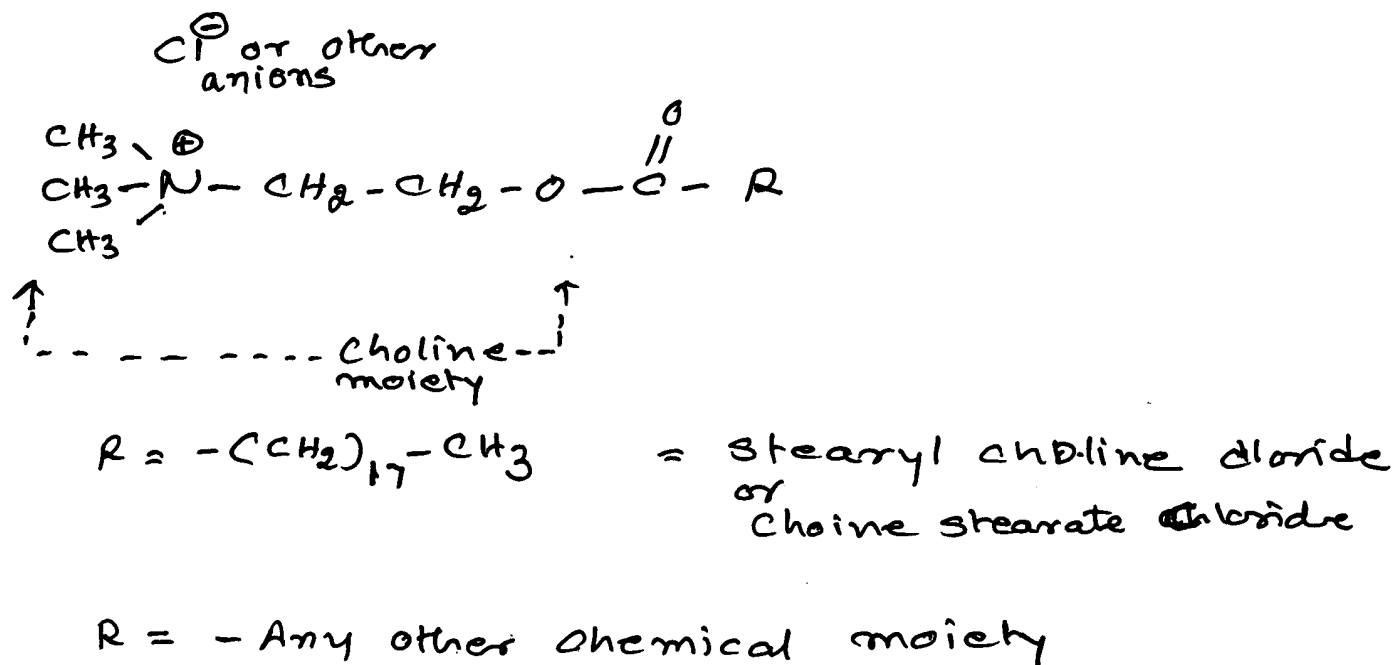 Cl⊖ or other
anions
CH3 ⊕
CH3-N-CH2-CH2-O-C-R
O
CH3
Choline
moiety
R = -(CH2)17-CH3 = Stearyl choline chloride
or
Choine stearate chloride
R = - Any other chemical moiety